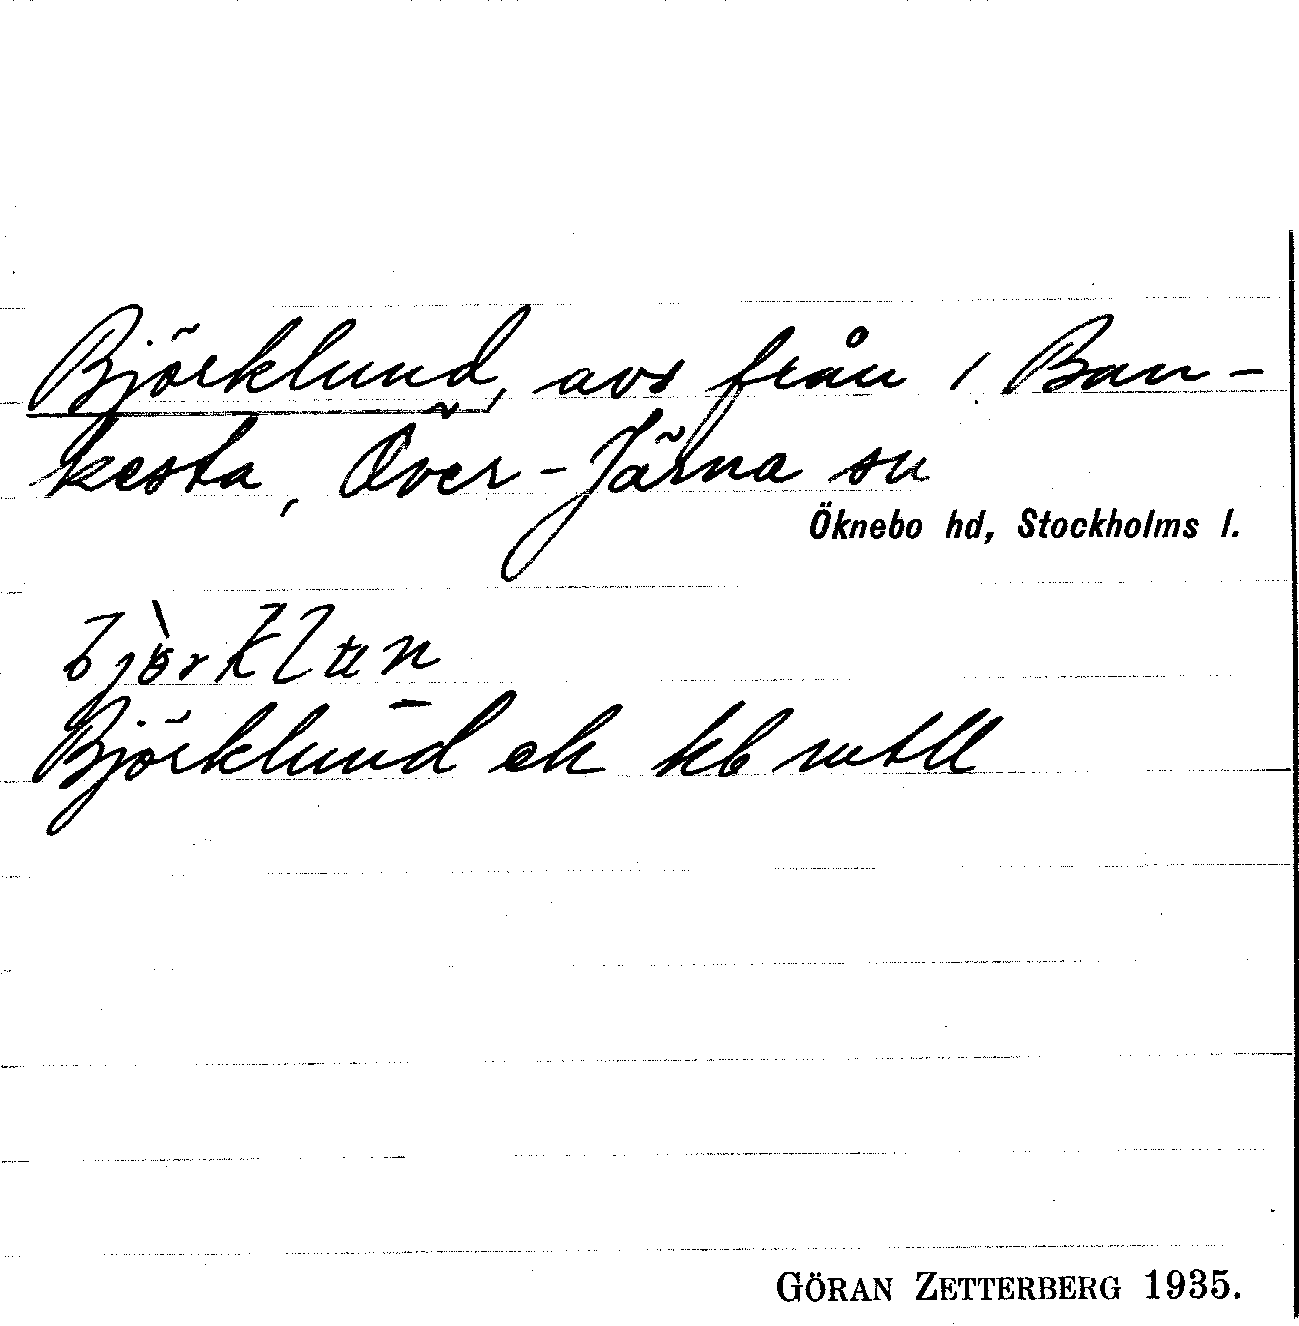 Björklund, avs från 1 Ban-
kesta, Över-Järna sn
Öknebo hd, Stockholms l.
bjòrklun
Björklund ek kb mtll
GÖRAN ZETTERBERG 1935.